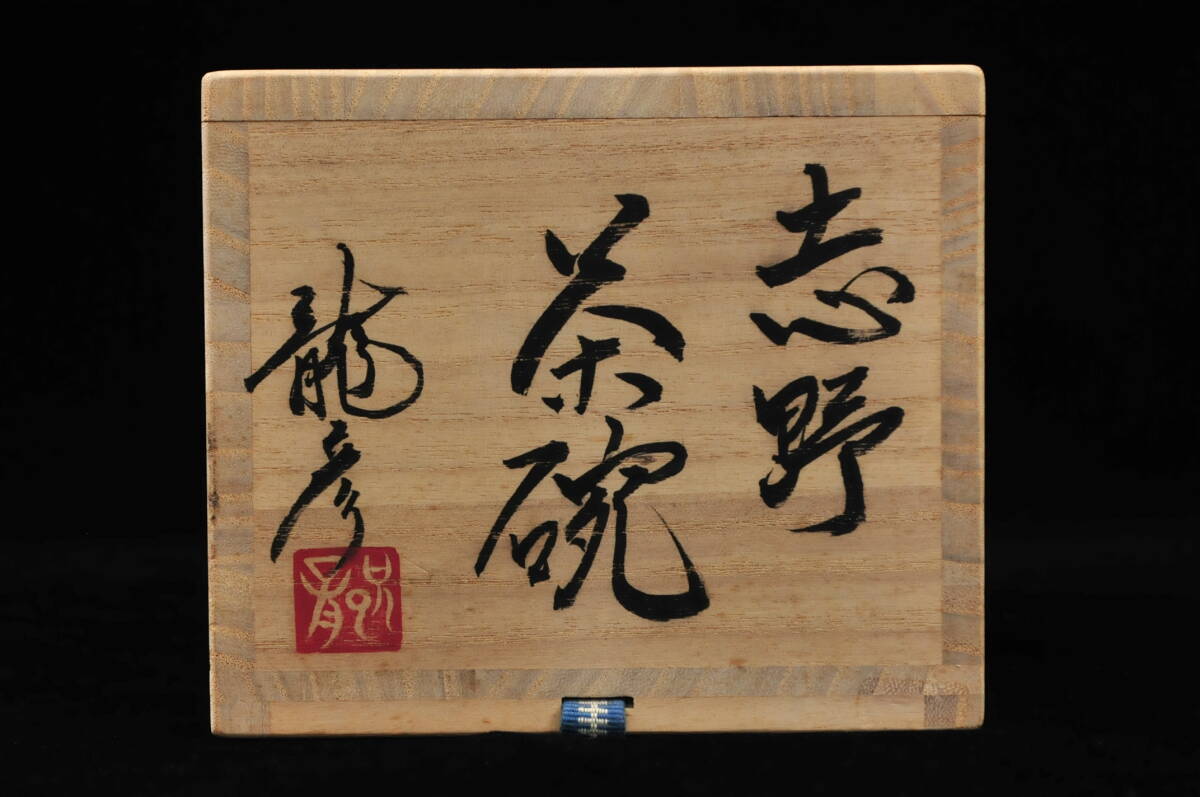 志野
茶碗
龍彦